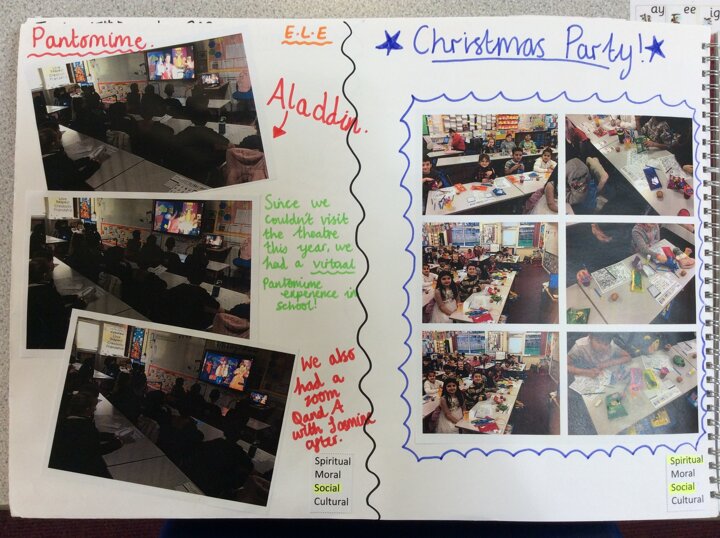 Pantomime.
E.L.E
Aladdin.
Since we
couldn't visit
the theatre
this year, we
had a virtual
Pantomime
experience in
school!
We also
had a
zoom
Q and A
with Jasmine
after.
Spiritual
Moral
Social
Cultural
Christmas Party!
Spiritual
Moral
Social
Cultural
ay
ee
ig